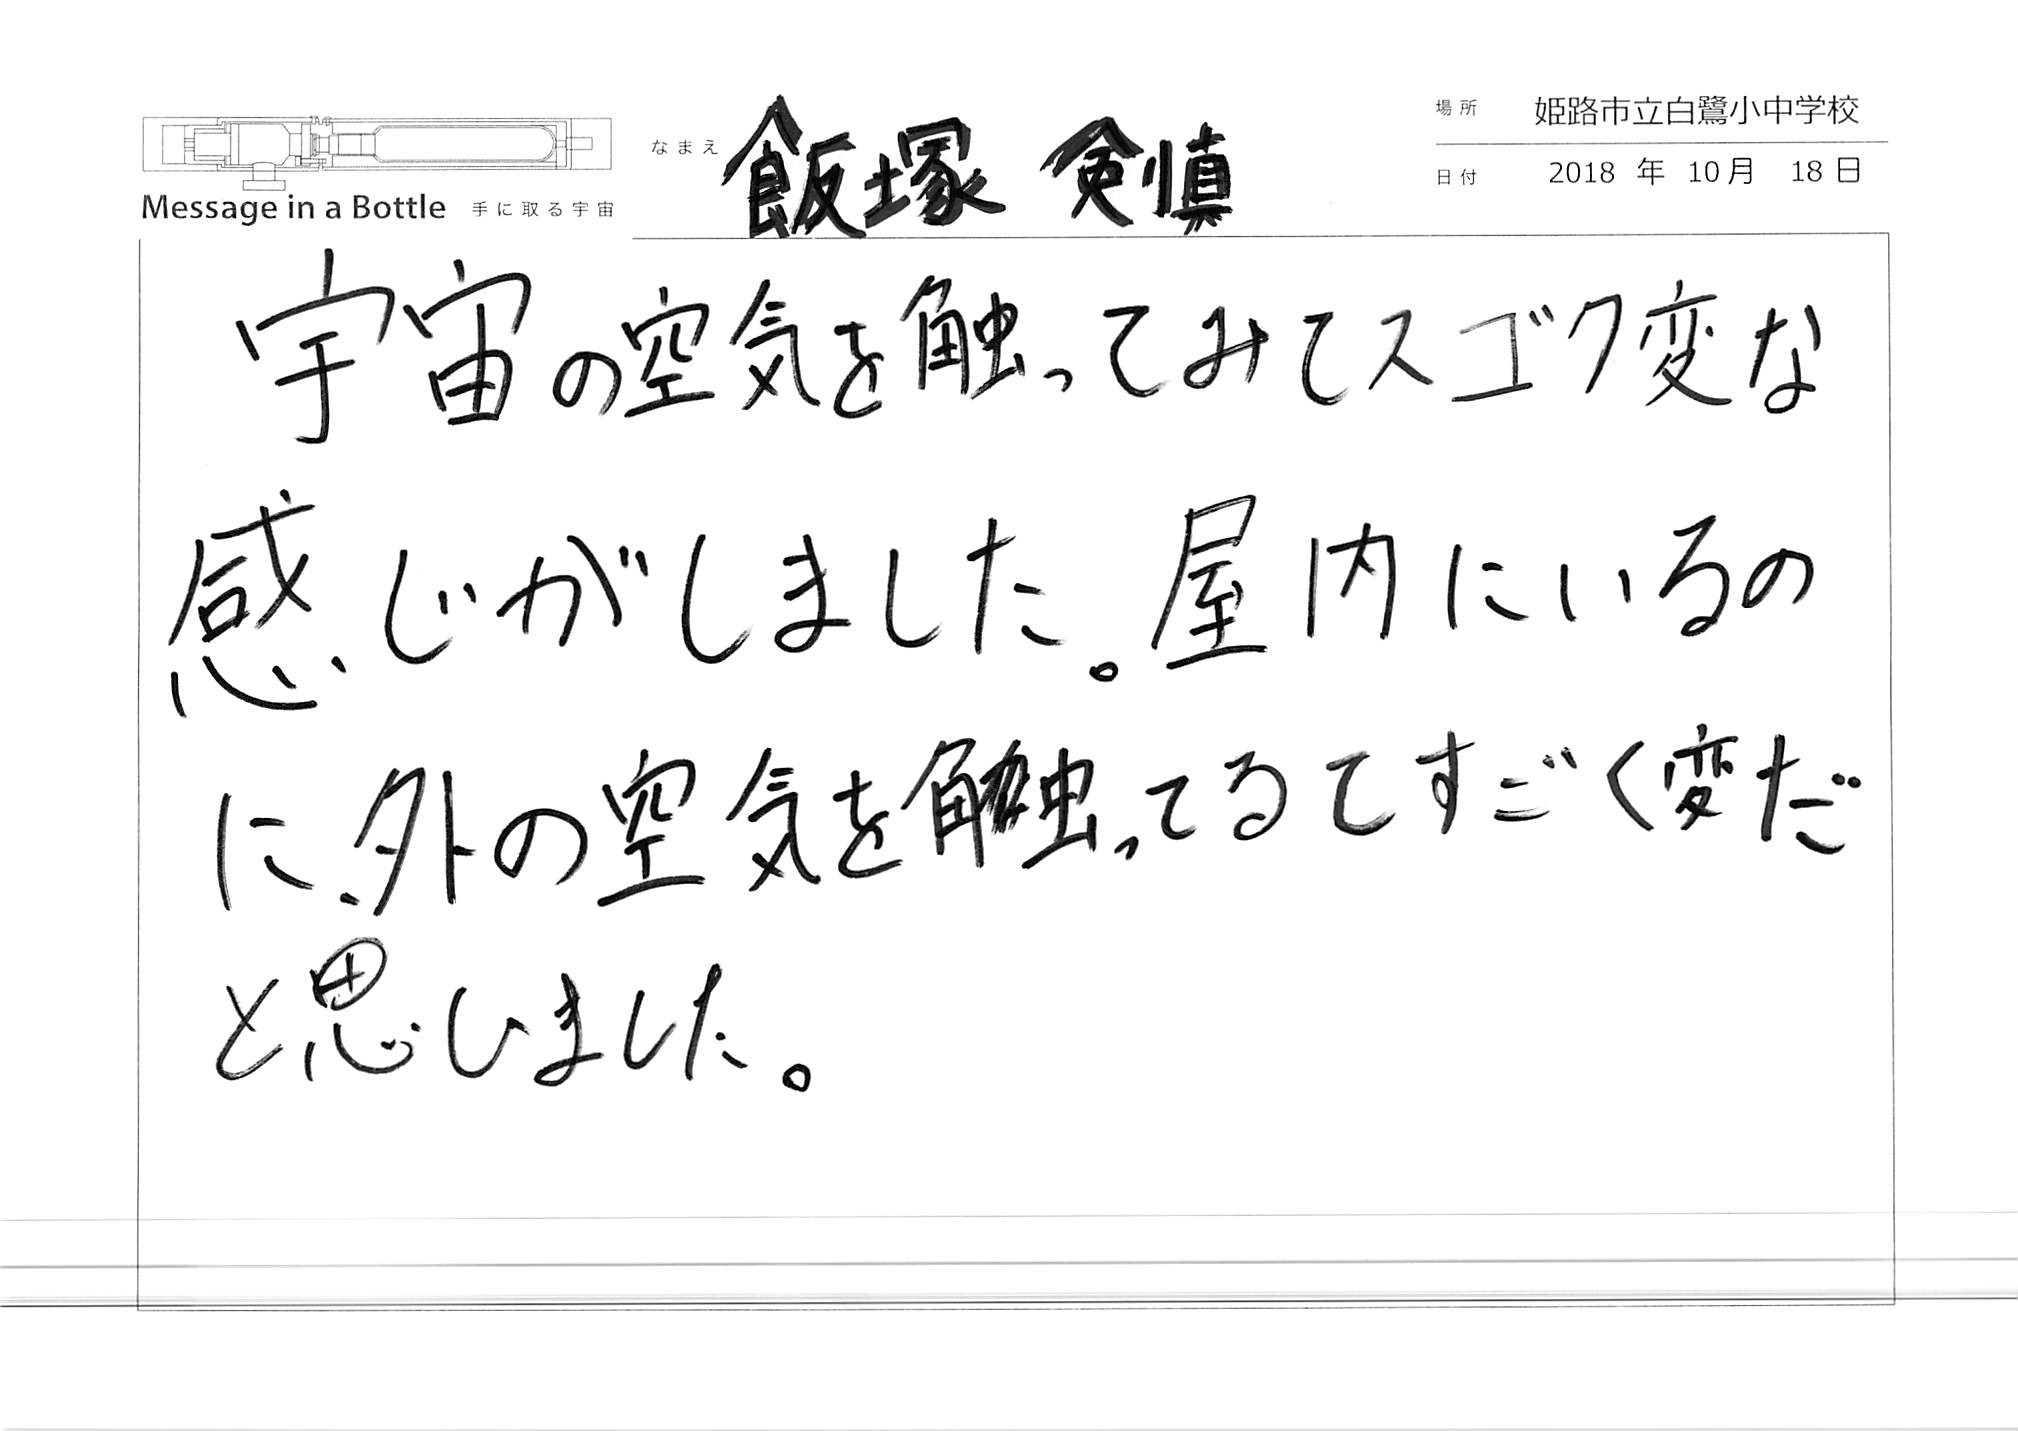 Message in a Bottle 手に取る宇宙
なまえ 飯塚 剣慎
場所 姫路市立白鷺小中学校
日付 2018 年 10月 18日
宇宙の空気を触ってみてスゴク変な
感じがしました。屋内にいるの
に、外の空気を触ってるてすごく変だ
と思いました。